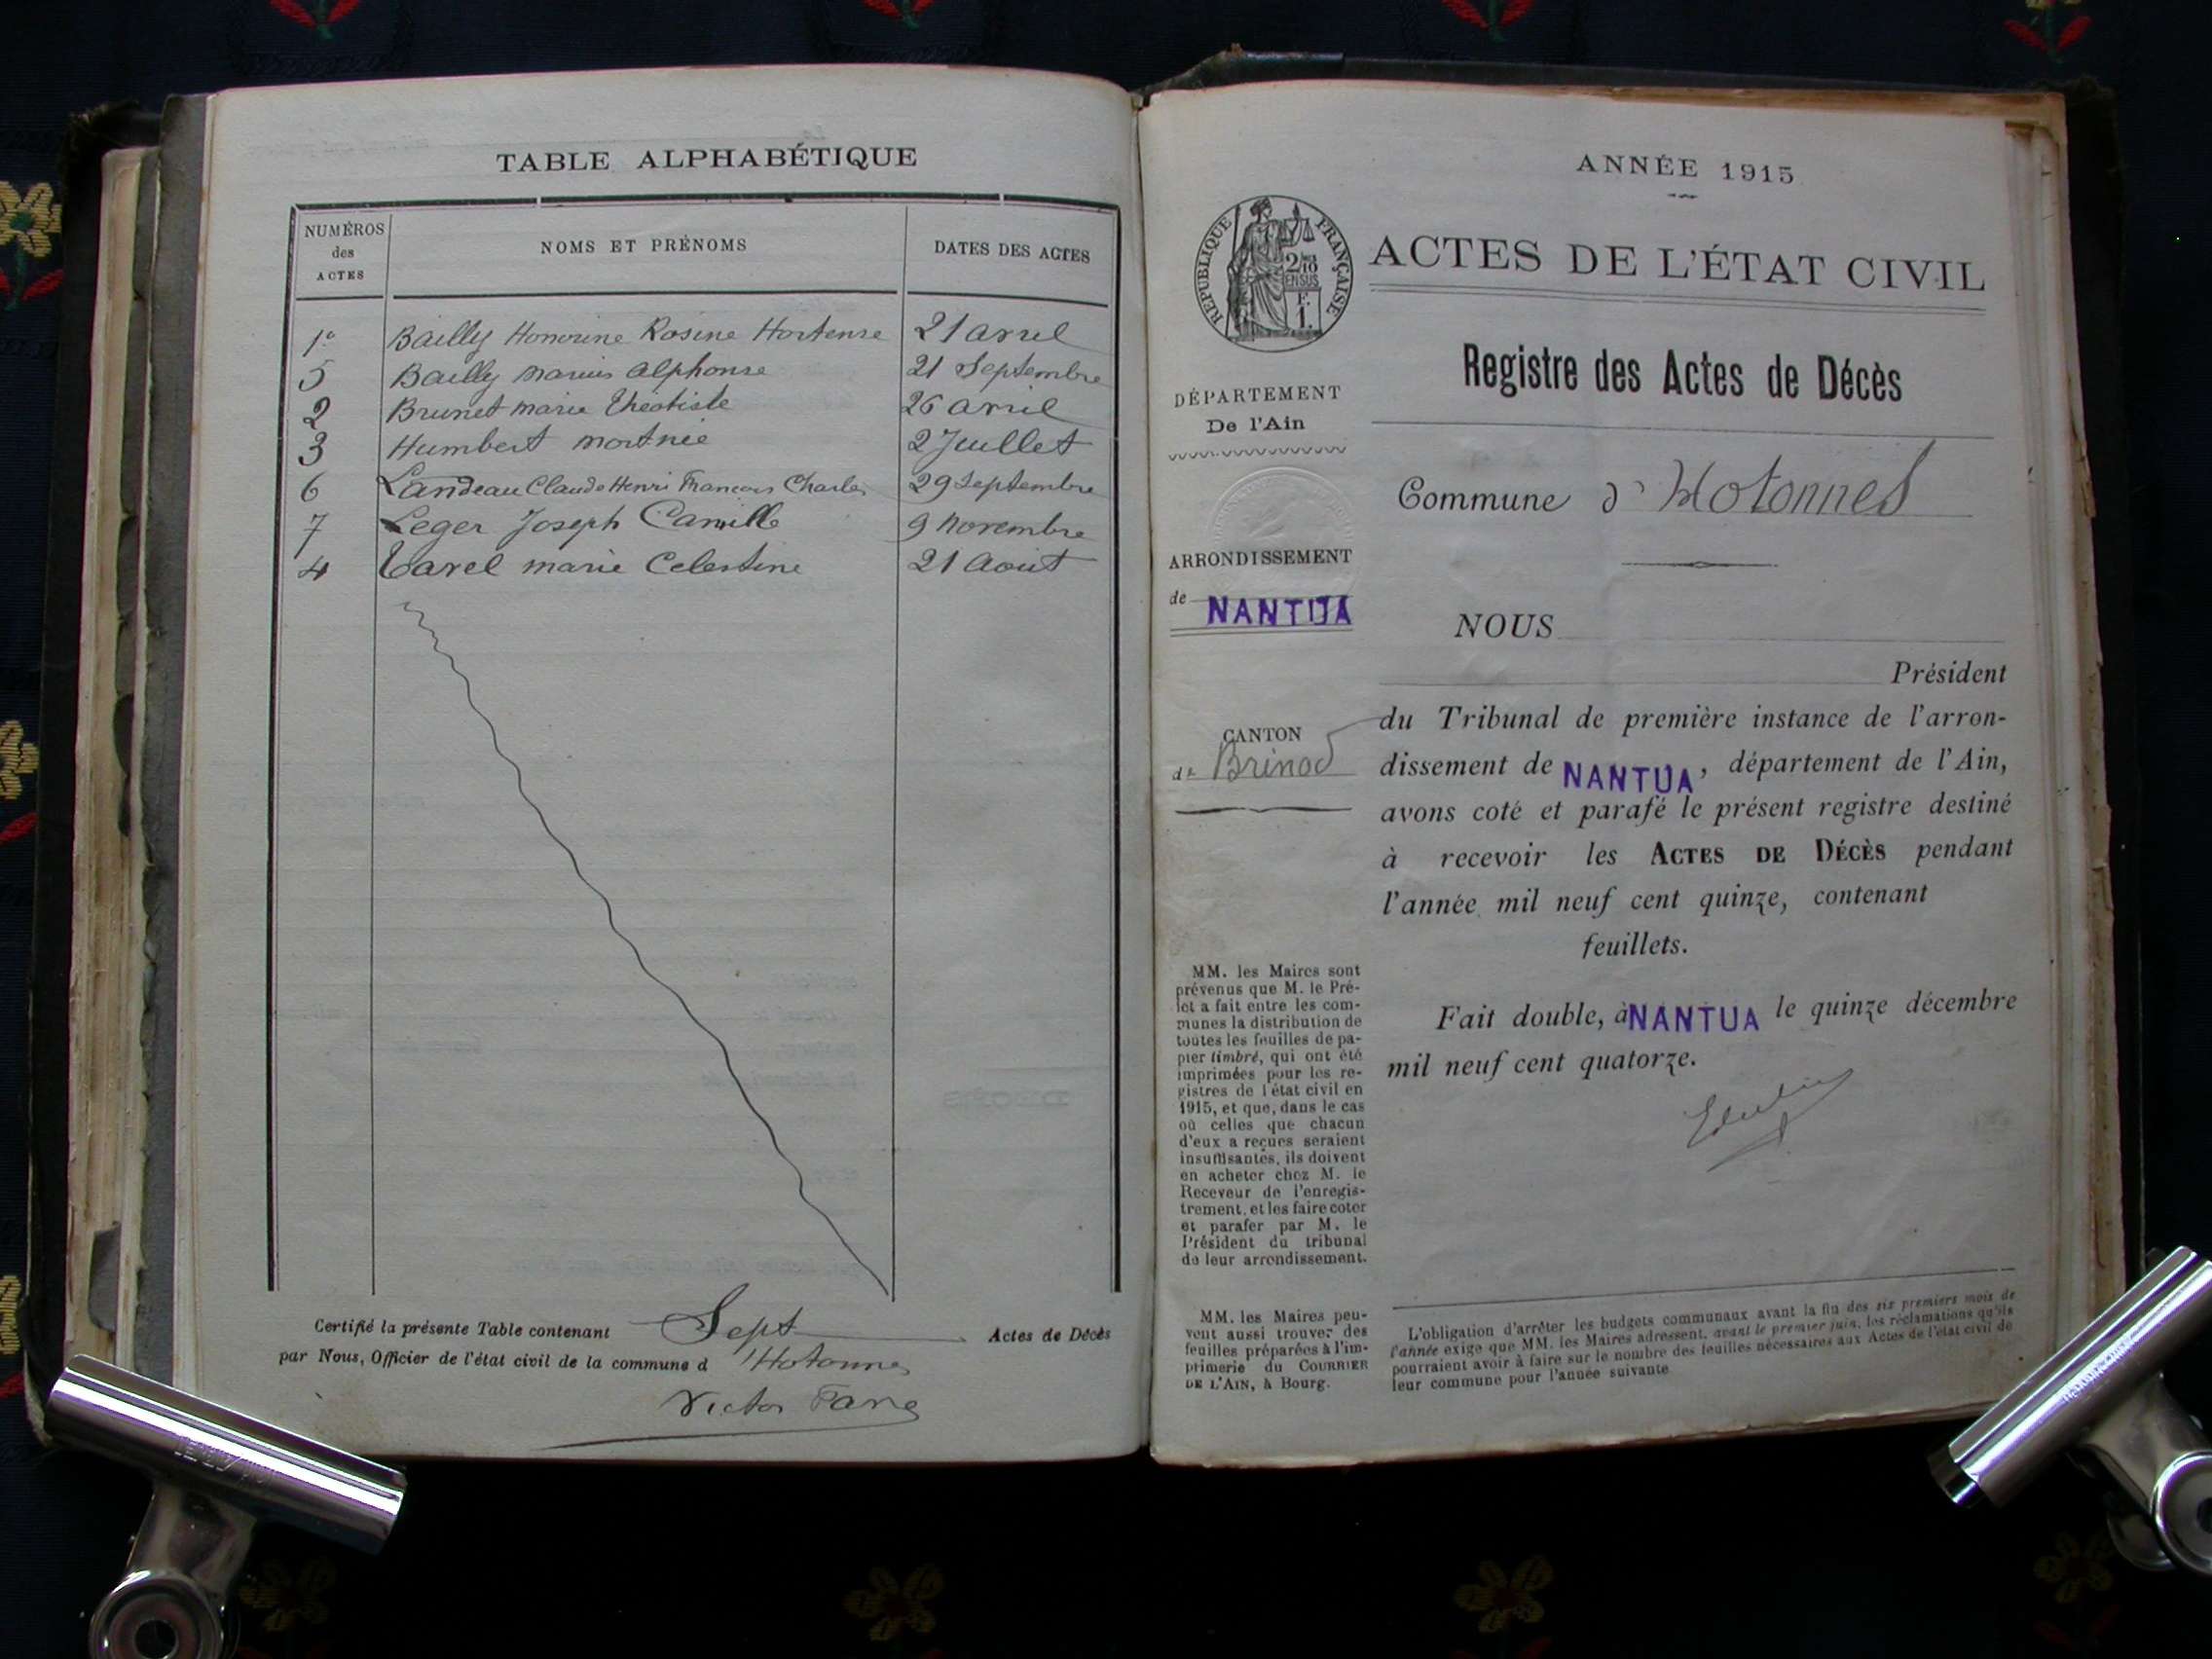 TABLE ALPHABÉTIQUE
NUMÉROS
des
ACTES
NOMS ET PRÉNOMS
DATES DES ACTES
1º Bailly Honorine Rosine Hortense 21 avril
5 Bailly marius alphonse 21 Septembre
2 Brunet marie théotiste 26 avril
3 Humbert mortnée 2 Juillet
6 Landeau Claude Henri François Charles 29 Septembre
7 Leger Joseph Camille 9 Novembre
4 Tavel marie Celestine 21 Aout
Certifié la présente Table contenant Sept Actes de Décès
par Nous, Officier de l'état civil de la commune d'Hotonnes
Victor
ANNÉE 1915
RÉPUBLIQUE FRANÇAISE
2/10
EN SUS
F.
1.
ACTES DE L'ÉTAT CIVIL
Registre des Actes de Décès
DÉPARTEMENT
De l'Ain
Commune d'Hotonnes
ARRONDISSEMENT
de NANTUA
NOUS
Président
CANTON
de Brénod
du Tribunal de première instance de l'arron-
dissement de NANTUA, département de l'Ain,
avons coté et parafé le présent registre destiné
à recevoir les ACTES DE DÉCÈS pendant
l'année mil neuf cent quinze, contenant
feuillets.
Fait double, à NANTUA le quinze décembre
mil neuf cent quatorze.
MM. les Maires sont
prévenus que M. le Pré-
fet a fait entre les com-
munes la distribution de
toutes les feuilles de pa-
pier timbré, qui ont été
imprimées pour les re-
gistres de l'état civil en
1915, et que, dans le cas
où celles que chacun
d'eux a reçues seraient
insuffisantes, ils doivent
en acheter chez M. le
Receveur de l'enregis-
trement, et les faire coter
et parafer par M. le
Président du tribunal
de leur arrondissement.
MM. les Maires peu-
vent aussi trouver des
feuilles préparées à l'im-
primerie du COURRIER
DE L'AIN, à Bourg.
L'obligation d'arrêter les budgets communaux avant la fin des six premiers mois de
l'année exige que MM. les Maires adressent, avant le premier juin, les réclamations qu'ils
pourraient avoir à faire sur le nombre des feuilles nécessaires aux Actes de l'état civil de
leur commune pour l'année suivante